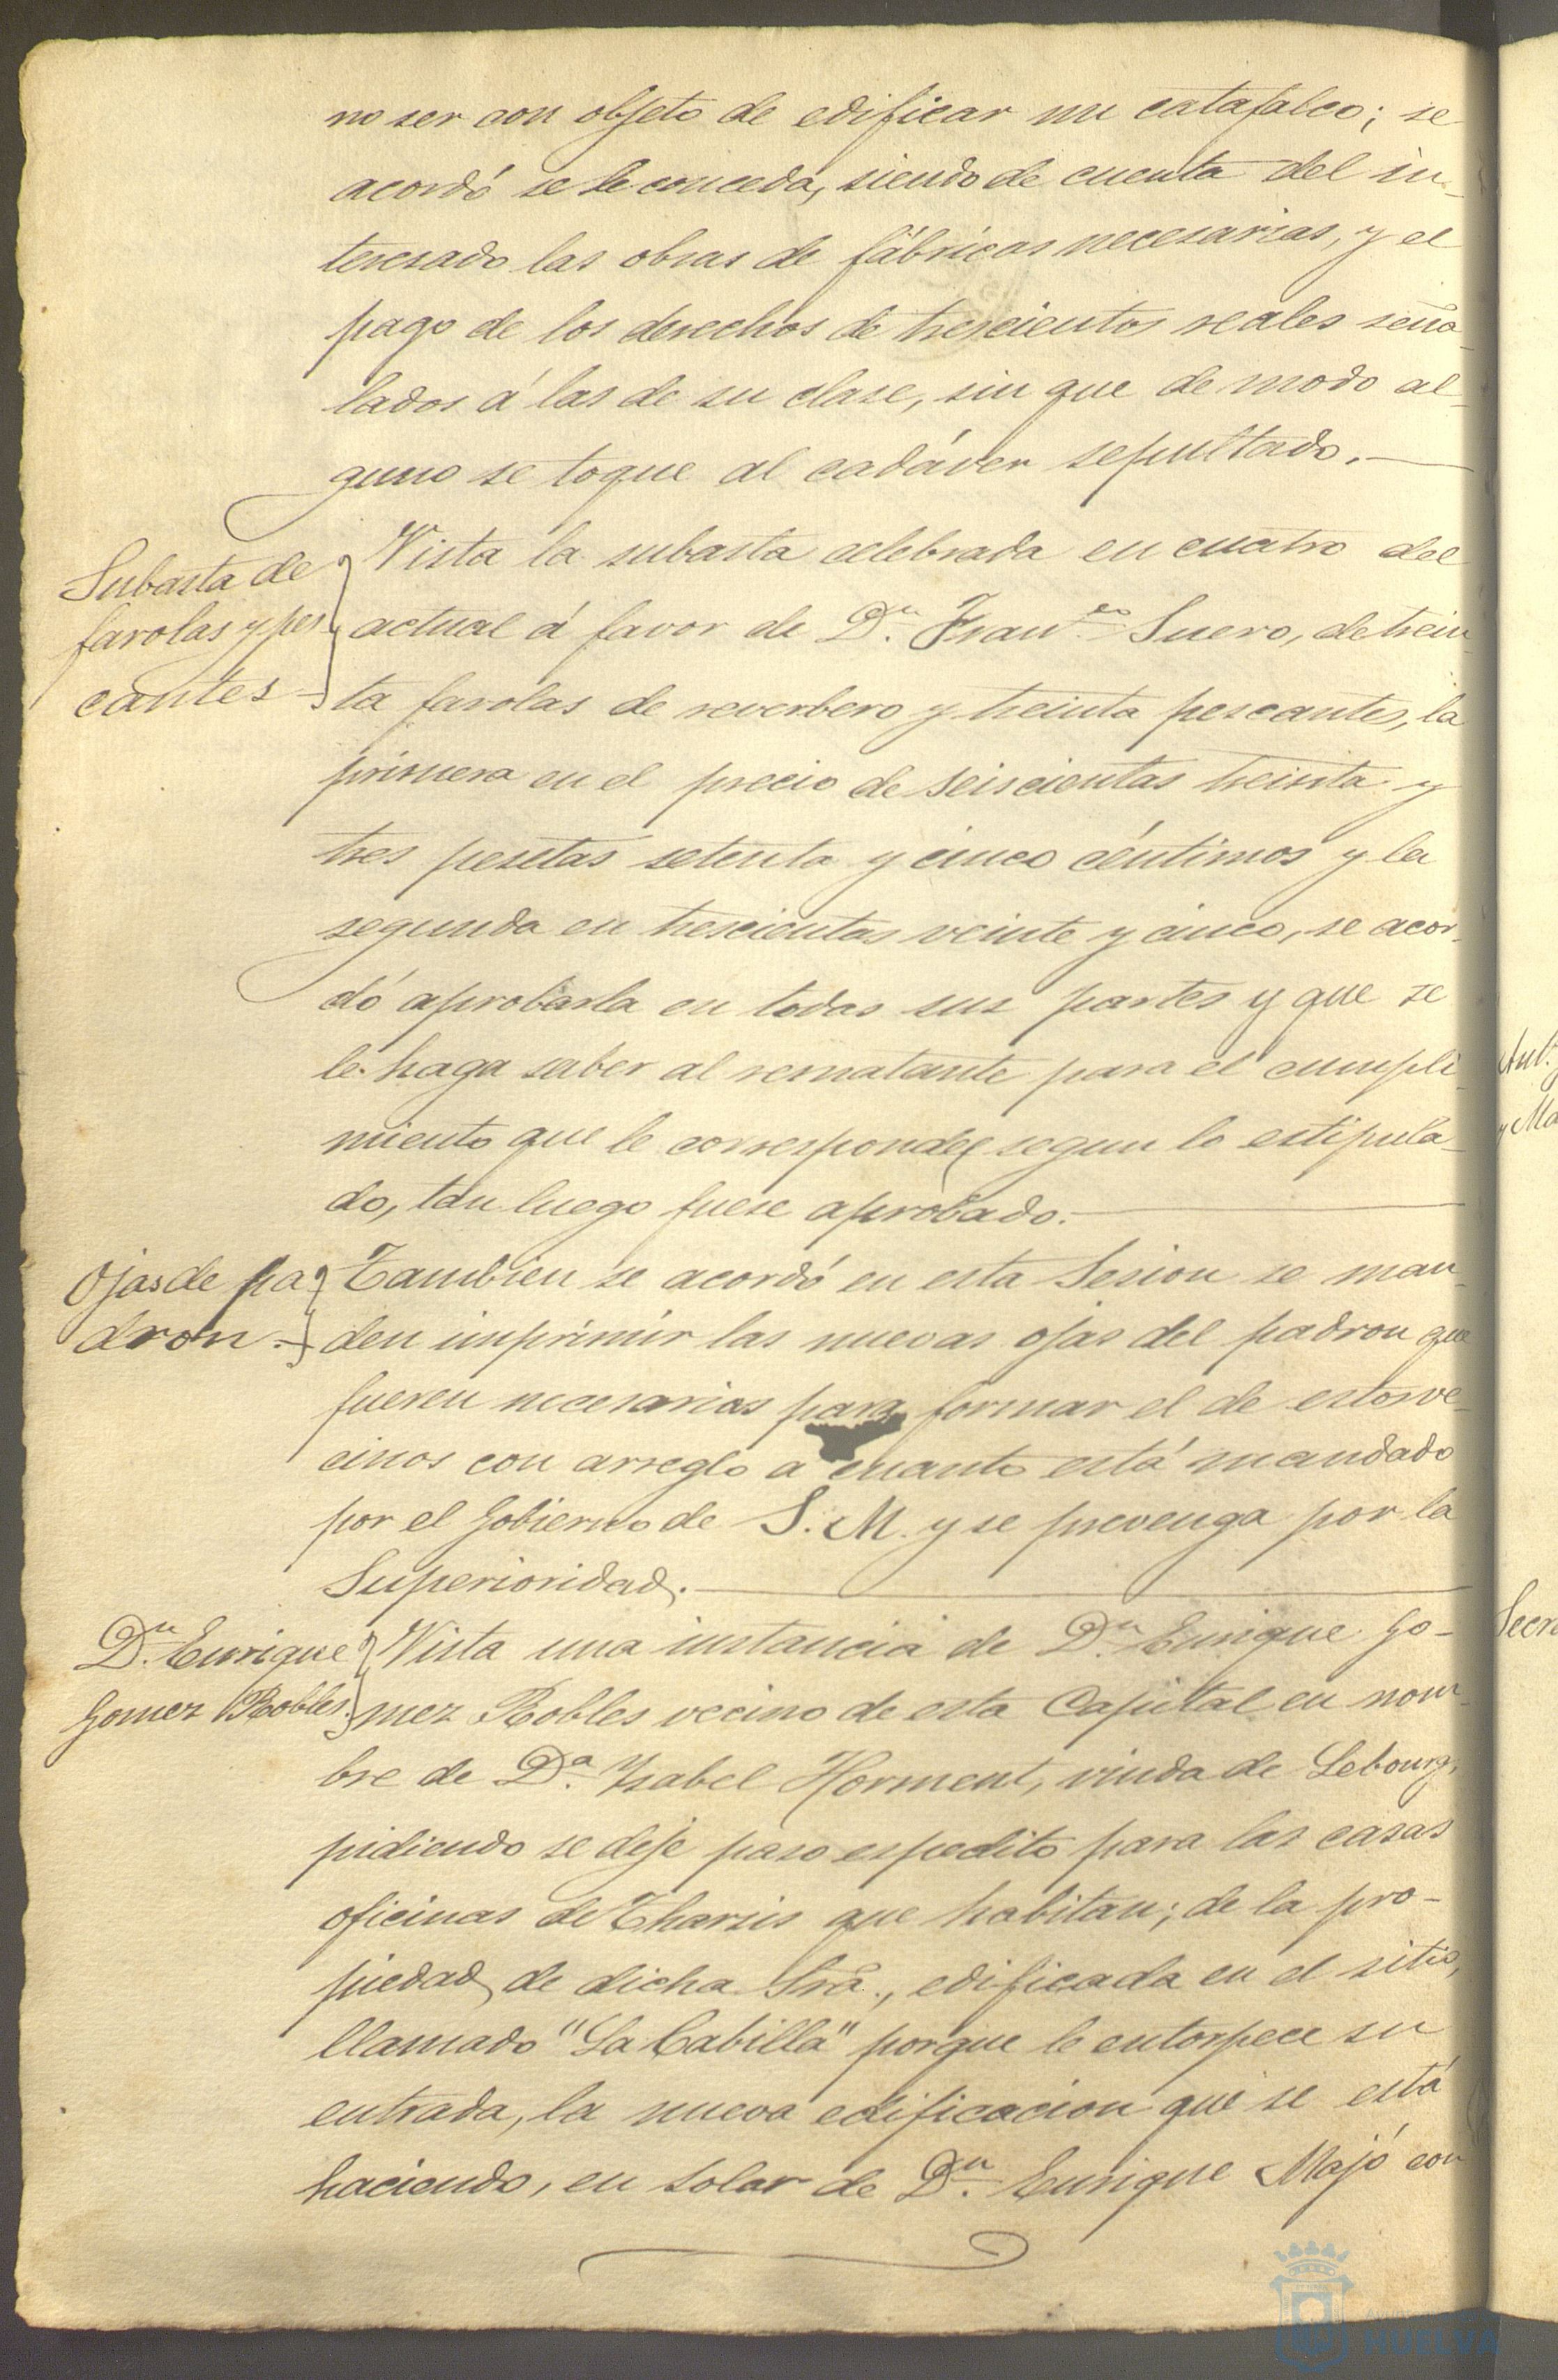 no ser con objeto de edificar un catafalco; se
acordó se le conceda, siendo de cuenta del in-
teresado las obras de fábricas necesarias, y el
pago de los derechos de trescientos reales seña-
lados á las de su clase, sin que de modo al-
guno se toque al cadáver sepultado.
Subasta de
farolas y pes-
cantes
Vista la subasta celebrada en cuatro del
actual á favor de D.n Fran.co Suero, de trein-
ta farolas de reverbero y treinta pescantes, la
primera en el precio de seiscientas treinta y
tres pesetas setenta y cinco céntimos y la
segunda en trescientas veinte y cinco, se acor-
dó aprobarla en todas sus partes y que se
le haga saber al rematante para el cumpli-
miento que le corresponde segun lo estipula-
do, tan luego fuese aprobado.
Ojas de pa
dron.
Tambien se acordó en esta Sesion se man-
den imprimir las nuevas ojas del padron que
fueren necesarias para formar el de estos ve-
cinos con arreglo a cuanto está mandado
por el Gobierno de S. M. y se prevenga por la
Superioridad.
D.n Enrique
Gomez Robles.
Vista una instancia de D.n Enrique Go-
mez Robles vecino de esta Capital en nom-
bre de D.a Ysabel Horment, viuda de Lebourg,
pidiendo se deje paso espedito para las casas
oficinas de Tharsis que habitan; de la pro-
piedad de dicha Srã., edificada en el sitio,
llamado "La Cabilla" porque le entorpece su
entrada, la nueva edificacion que se está
haciendo, en solar de D.n Enrique Majó con
Ant.
y Ma
Secre
HUELVA